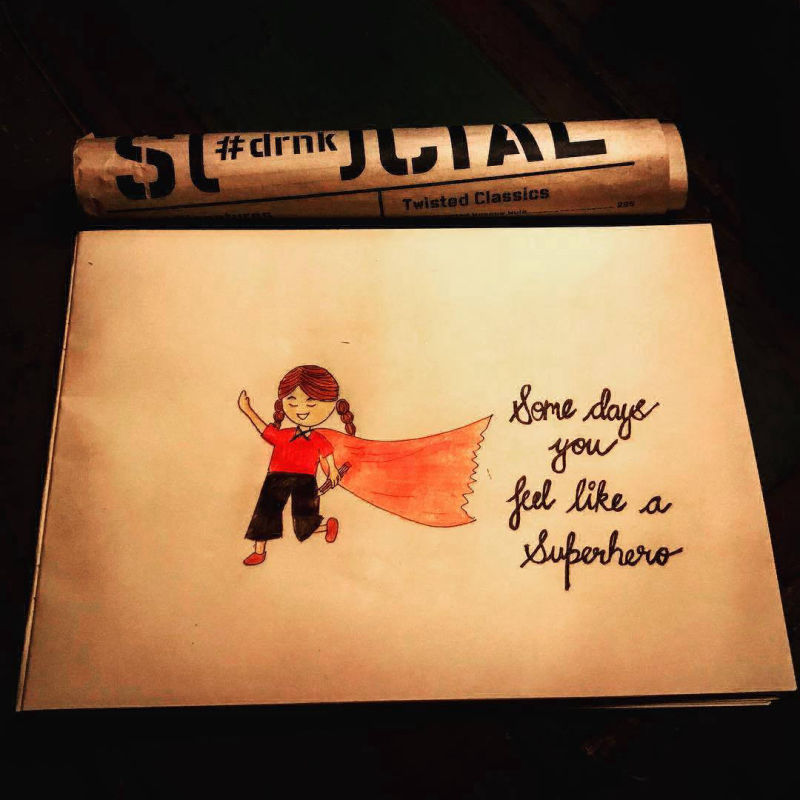 #drnk
SOCIAL
Twisted Classics
295
Some days
you
feel like a
Superhero